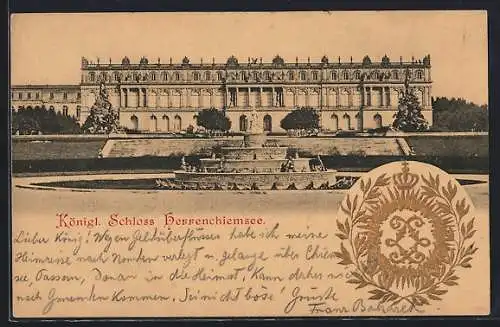 Königl. Schloss Herrenchiemsee.
Lieber König! Wegen Geldüberflusses habe ich meine
Heimreise nach verlegt u. gelange über Chiem
see, Passau, Donau in die Heimat. Kann daher nicht
nach kommen. Sei nicht böse! Grüße
Franz